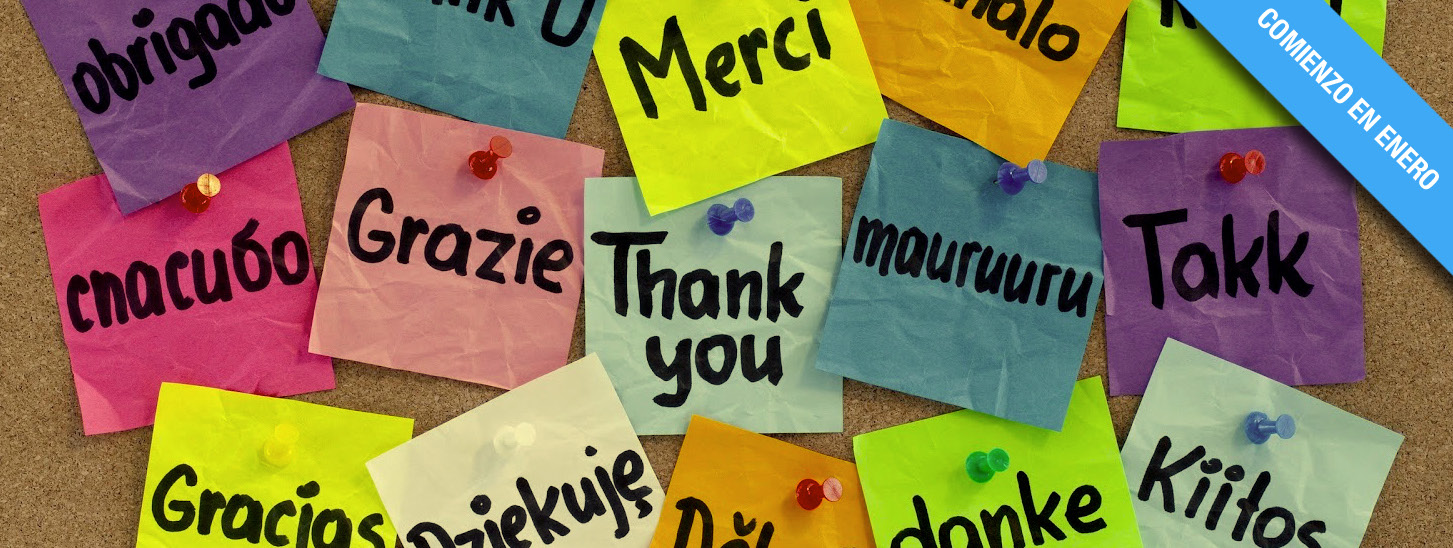 obrigado
U
Merci
COMIENZO EN ENERO
спасибо
Grazie
Thank
you
mauruuru
Takk
Gracias
Dziękuję
danke
Kiitos